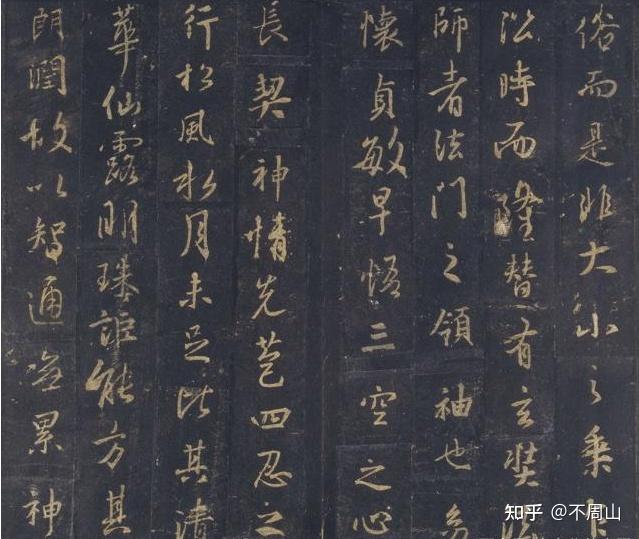 俗而是非大小之乘乍
沿時而隆替有玄奘法
師者法門之領袖也幼
懷貞敏早悟三空之心
長契神情先苞四忍之
行松風水月未足比其清
華仙露明珠詎能方其
朗潤故以智通無累神
知乎 @不周山